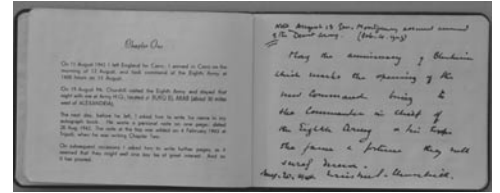 Chapter One
On 12 August 1942 I left England for Cairo. I arrived in Cairo on the
morning of 12 August, and took command of the Eighth Army at
1400 hours on 13 August.
On 19 August Mr. Churchill visited the Eighth Army and stayed that
night with me at Army H.Q., located at BURG EL ARAB (about 30 miles
west of ALEXANDRIA).
The next day, before he left, I asked him to write his name in my
autograph book. He wrote a personal note on one page, dated
20 Aug 1942. The note at the top was added on 4 February 1943 at
Tripoli, when he was writing Chapter Two.
On subsequent occasions I asked him to write further pages, as it
seemed that they might one day be of great interest. And so
it has proved.
August 13 Gen. Montgomery assumed command
of the Desert Army. (Feb. 4. 1943)
May the anniversary of Blenheim
which marks the opening of the
new Command bring to
the Commander in Chief of
the Eighth Army & his troops
the fame & fortune they will
surely deserve.
Aug. 20. 1942 Winston S. Churchill